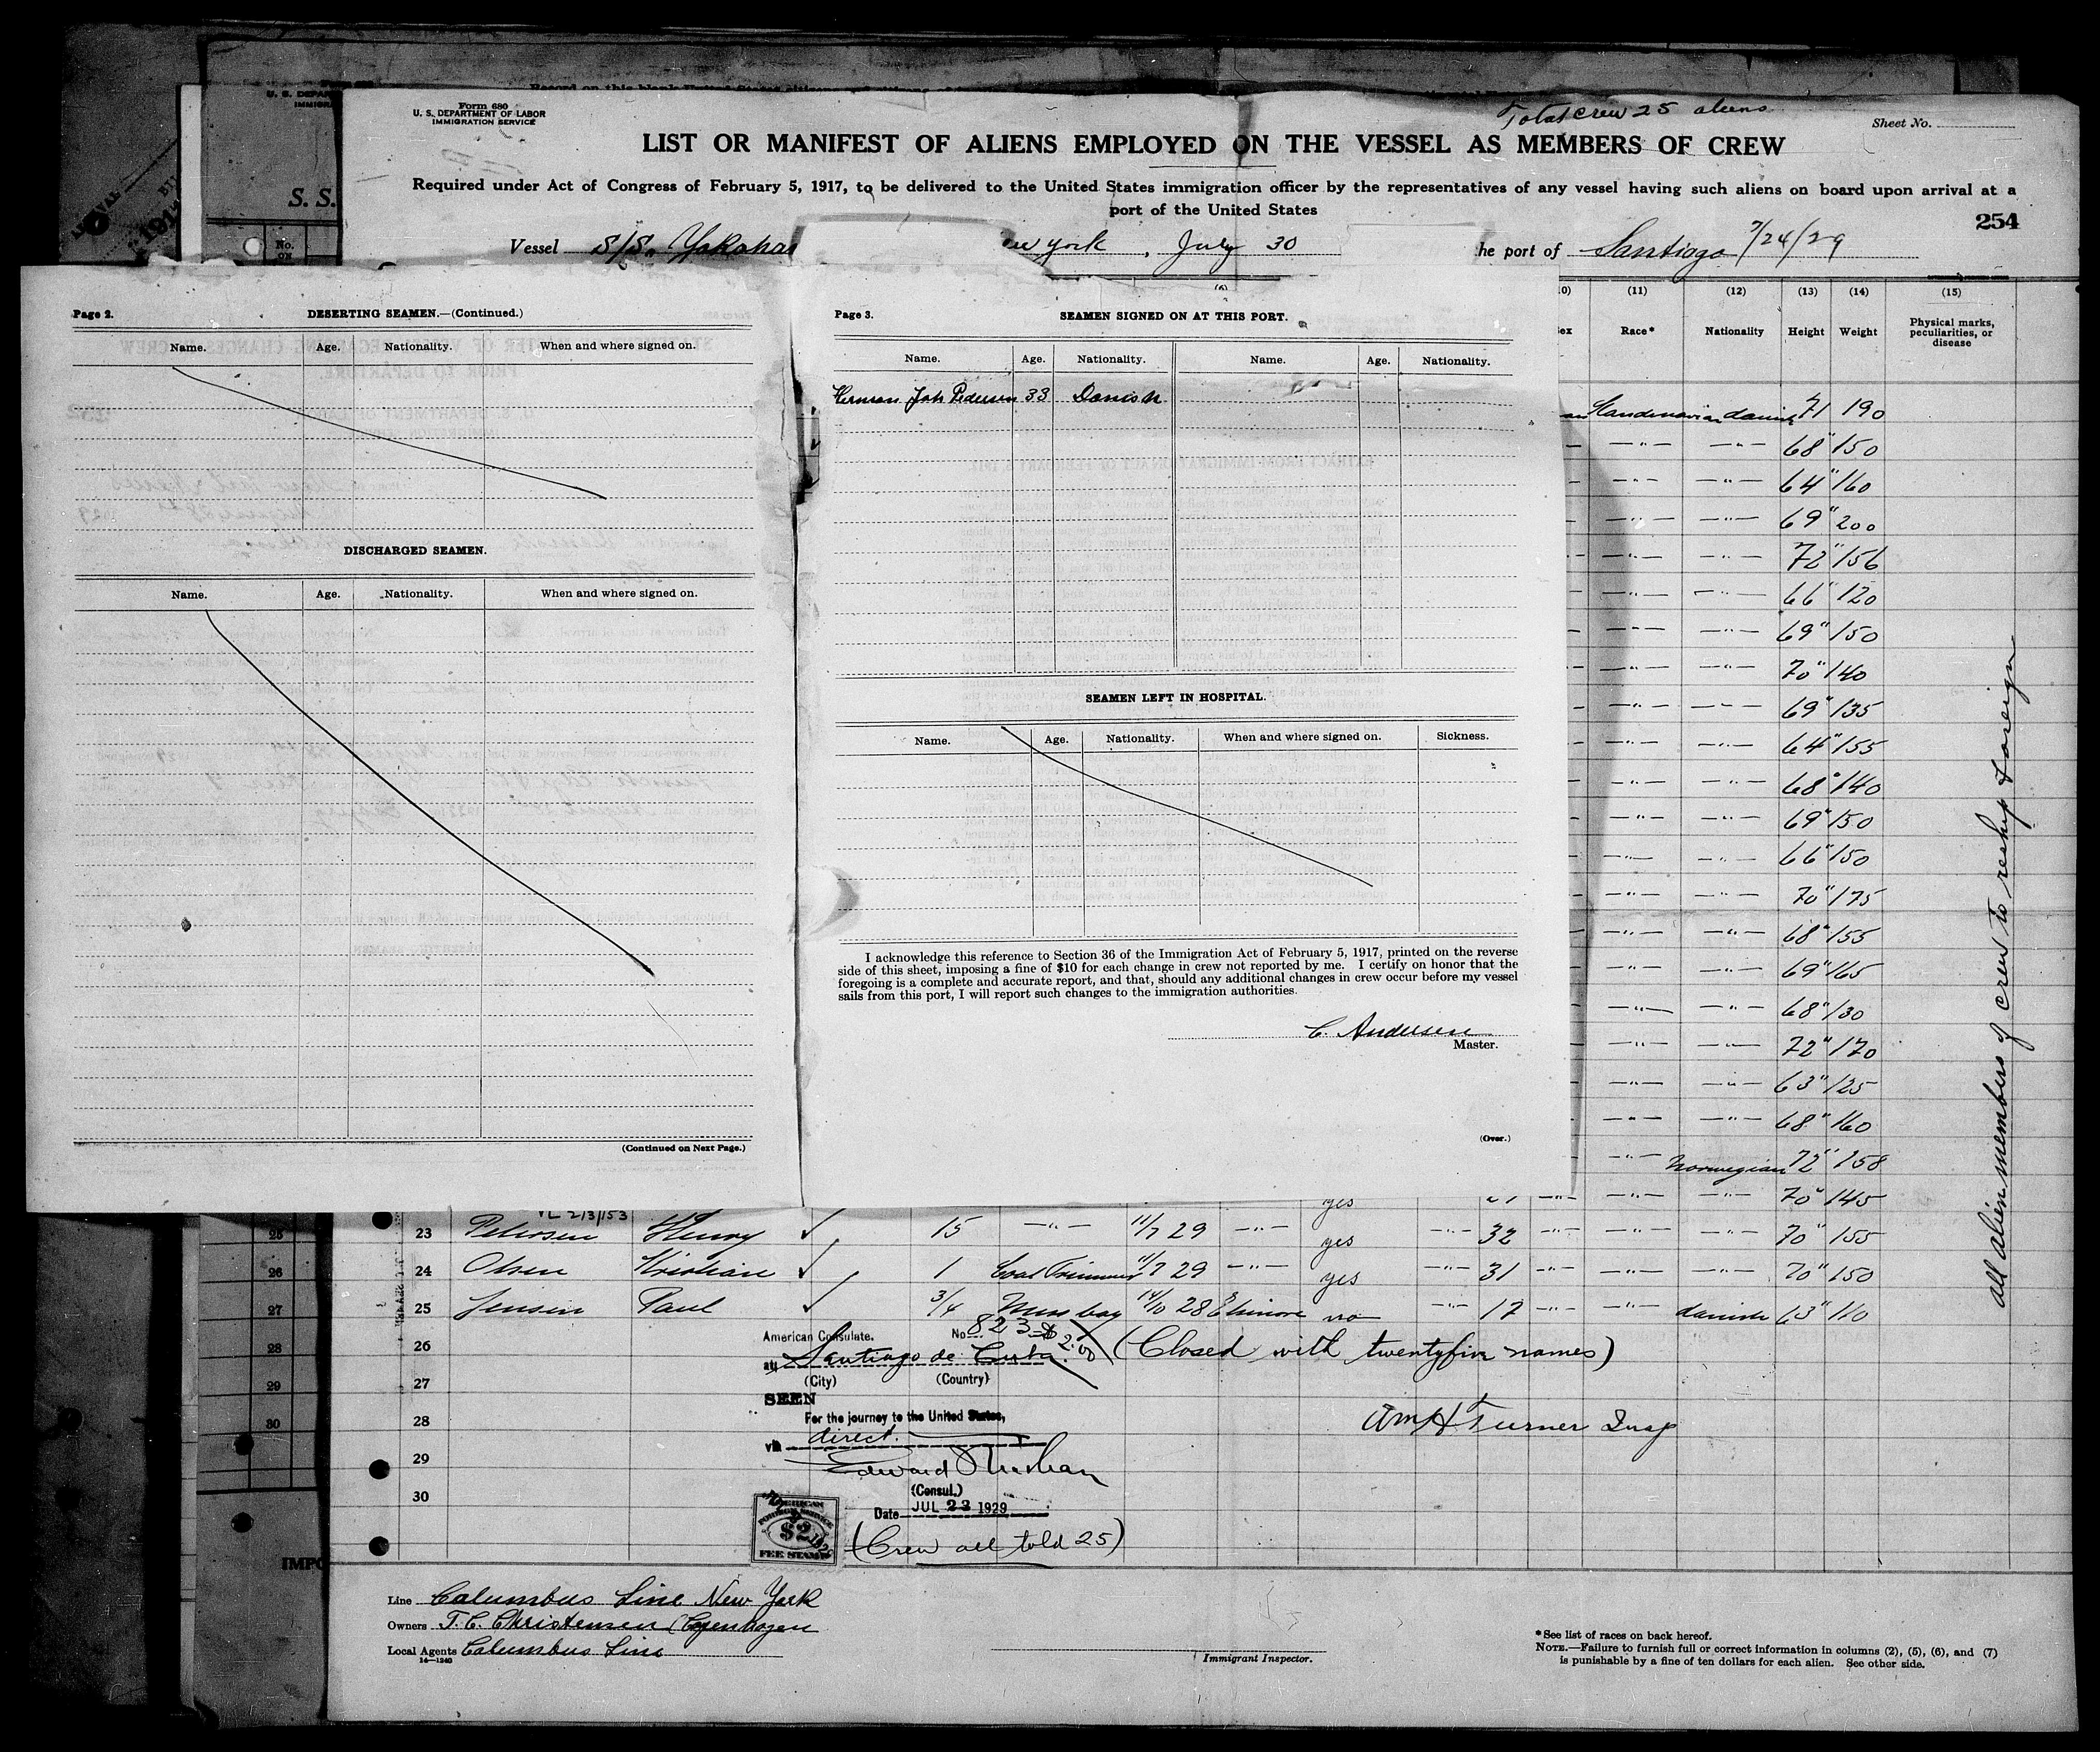 Total crew 25 aliens
Form 680
U. S. DEPARTMENT OF LABOR
IMMIGRATION SERVICE
Sheet No.
LIST OR MANIFEST OF ALIENS EMPLOYED ON THE VESSEL AS MEMBERS OF CREW
Required under Act of Congress of February 5, 1917, to be delivered to the United States immigration officer by the representatives of any vessel having such aliens on board upon arrival at a
port of the United States
254
S. S.
No.
Vessel S/S. Yokohas ew york, July 30 he port of Santiago 7/24/29
Page 2. DESERTING SEAMEN.—(Continued.)
Name. Age. Nationality. When and where signed on.
DISCHARGED SEAMEN.
Name. Age. Nationality. When and where signed on.
(Continued on Next Page.)
Page 3. SEAMEN SIGNED ON AT THIS PORT.
Name. Age. Nationality. Name. Age. Nationality.
Herman Joh Pedersen 33 Danish
SEAMEN LEFT IN HOSPITAL.
Name. Age. Nationality. When and where signed on. Sickness.
I acknowledge this reference to Section 36 of the Immigration Act of February 5, 1917, printed on the reverse
side of this sheet, imposing a fine of $10 for each change in crew not reported by me. I certify on honor that the
foregoing is a complete and accurate report, and that, should any additional changes in crew occur before my vessel
sails from this port, I will report such changes to the immigration authorities.
C. Andersen
Master.
(Over.)
(11) (12) (13) (14) (15)
Race* Nationality Height Weight Physical marks,
peculiarities, or
disease
Scandinavian danish 71 190
—"— —"— 68" 150
—"— —"— 64" 160
—"— —"— 69" 200
—"— —"— 72" 156
—"— —"— 66" 120
—"— —"— 69" 150
—"— —"— 70" 140
—"— —"— 69" 135
—"— —"— 64" 155
—"— —"— 68" 140
—"— —"— 69" 150
—"— —"— 66" 150
—"— —"— 70" 175
—"— —"— 68" 155
—"— —"— 69" 165
—"— —"— 68" 130
—"— —"— 72" 170
—"— —"— 63" 125
—"— —"— 68" 160
—"— Norwegian 72" 158
yes —"— —"— —"— 70" 145
23 Petersen Henry ✓ 15 —"— 11/7 29 —"— yes —"— 32 —"— —"— —"— 70" 155
24 Olsen Kristian ✓ 1 Coal Trimmer 11/7 29 —"— yes —"— 31 —"— —"— —"— 70" 150
25 Jensen Paul ✓ 3/4 Mess boy 14/10 28 Elsinore no —"— 17 —"— —"— danish 63" 110
all alien members of crew to reship foreign
American Consulate. No. 823 $2.00
26 at Santiago de Cuba. (Closed with twentyfive names)
(City) (Country)
27
SEEN
28 For the journey to the United States,
via direct.
Wm H Turner Insp
29 Edward
(Consul.)
30 Date JUL 23 1929
(Crew all told 25)
AMERICAN
FOREIGN SERVICE
$2
FEE STAMP
25
26
27
28
29
30
IMPO
Line Columbus Line New York
Owners T. C. Christensen Copenhagen
Local Agents Columbus Line
14—1240
Immigrant Inspector.
*See list of races on back hereof.
NOTE.—Failure to furnish full or correct information in columns (2), (5), (6), and (7)
is punishable by a fine of ten dollars for each alien. See other side.